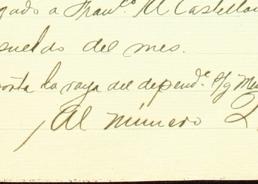 gado a Franco. M. Castellan
sueldo del mes.
la raya del depende. p/g
Al número 2